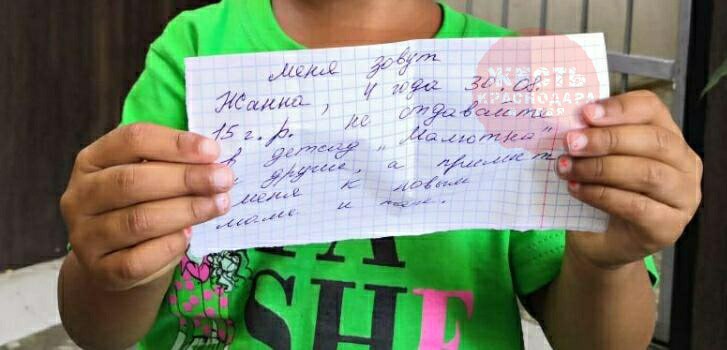 меня зовут
Жанна, 4 года 30.08.
15 г.р. не отдавайте
в детсад "Малютка"
и другие, а примите
меня к новым
маме и пап.
ЖЕСТЬ
КРАСНОДАРА
SHE